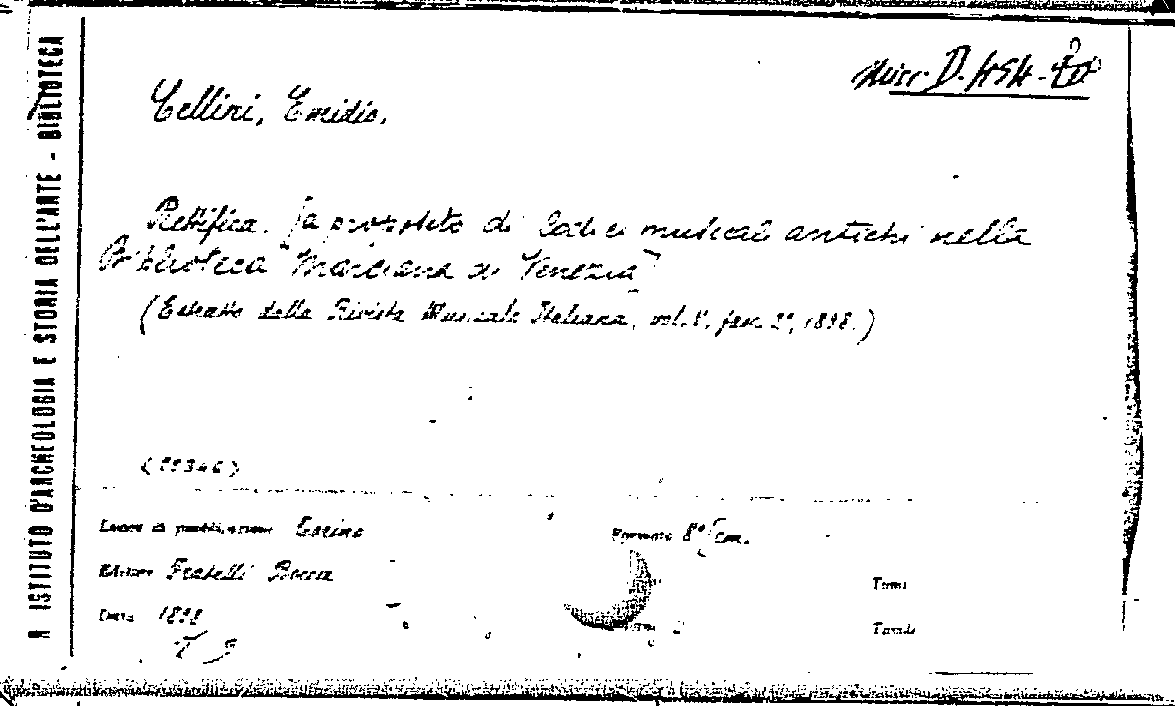 Misc. D. 454
Cellini, Emidio.
Rettifica. [a proposito di Codici musicali antichi nella
Biblioteca Marciana di Venezia]
(Estratto dalla Rivista Musicale Italiana, vol. fasc. 2°, 1898.)
Luogo di pubblicazione Torino
Formato 8°/cm.
Editore Fratelli Bocca
Tomi
Data 1898
Pag. 2
Tavole
R ISTITUTO D'ARCHEOLOGIA E STORIA DELL'ARTE - BIBLIOTECA